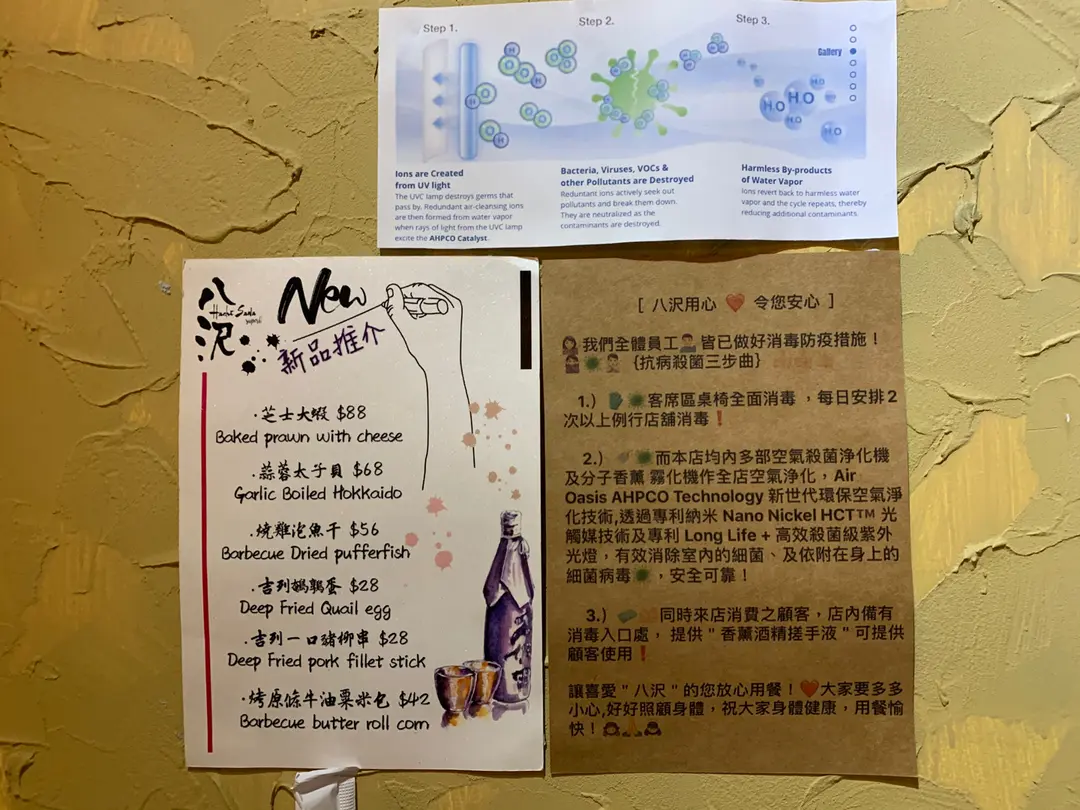 Step 1.
Step 2.
Step 3.
Gallery
H
H
H
H
H₂O
H₂O
H₂O
H₂O
H₂O
Ions are Created
from UV light
The UVC lamp destroys germs that
pass by. Redundant air-cleansing ions
are then formed from water vapor
when rays of light from the UVC lamp
excite the AHPCO Catalyst.
Bacteria, Viruses, VOCs &
other Pollutants are Destroyed
Reduntant ions actively seek out
pollutants and break them down.
They are neutralized as the
contaminants are destroyed.
Harmless By-products
of Water Vapor
Ions revert back to harmless water
vapor and the cycle repeats, thereby
reducing additional contaminants.
八沢
Hachi Sawa
New
新品推介
·芝士大蝦 $88
Baked prawn with cheese
·蒜蓉太子貝 $68
Garlic Boiled Hokkaido
·燒雞泡魚干 $56
Barbecue Dried pufferfish
·吉列鵪鶉蛋 $28
Deep Fried Quail egg
·吉列一口豬柳串 $28
Deep Fried pork fillet stick
·烤原條牛油粟米包 $42
Barbecue butter roll corn
[ 八沢用心 ❤️ 令您安心 ]
我們全體員工 皆已做好消毒防疫措施！
{抗病殺菌三步曲}
1.) 客席區桌椅全面消毒，每日安排2
次以上例行店舖消毒❗
2.) 而本店均內多部空氣殺菌淨化機
及分子香薰 霧化機作全店空氣淨化，Air
Oasis AHPCO Technology 新世代環保空氣淨
化技術,透過專利納米 Nano Nickel HCT™ 光
觸媒技術及專利 Long Life + 高效殺菌級紫外
光燈，有效消除室內的細菌、及依附在身上的
細菌病毒，安全可靠！
3.) 同時來店消費之顧客，店內備有
消毒入口處， 提供 " 香薰酒精搓手液 " 可提供
顧客使用❗
讓喜愛 " 八沢 " 的您放心用餐！❤️大家要多多
小心,好好照顧身體，祝大家身體健康，用餐愉
快！